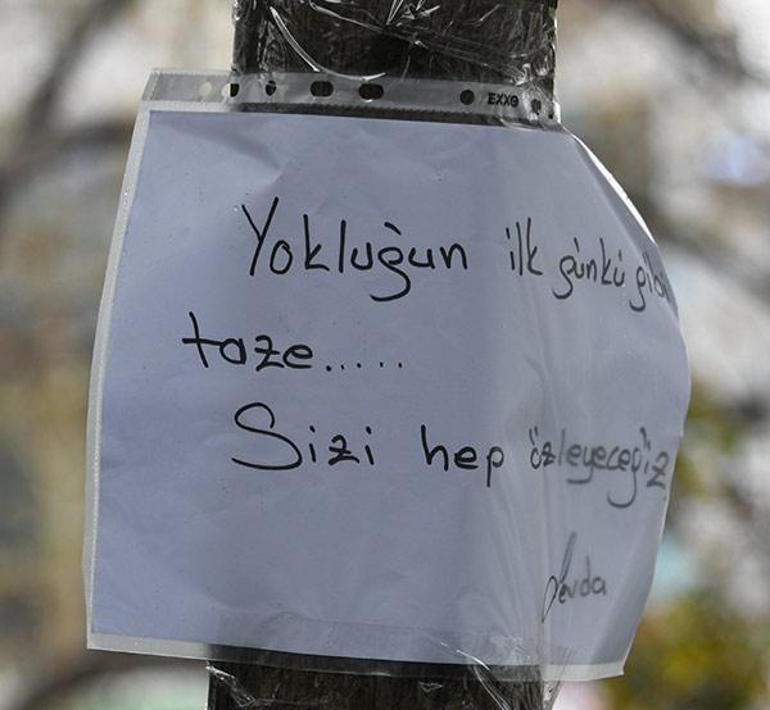 EXXO
Yokluğun ilk günkü gibi
taze.....
Sizi hep özleyeceğiz
Sevda